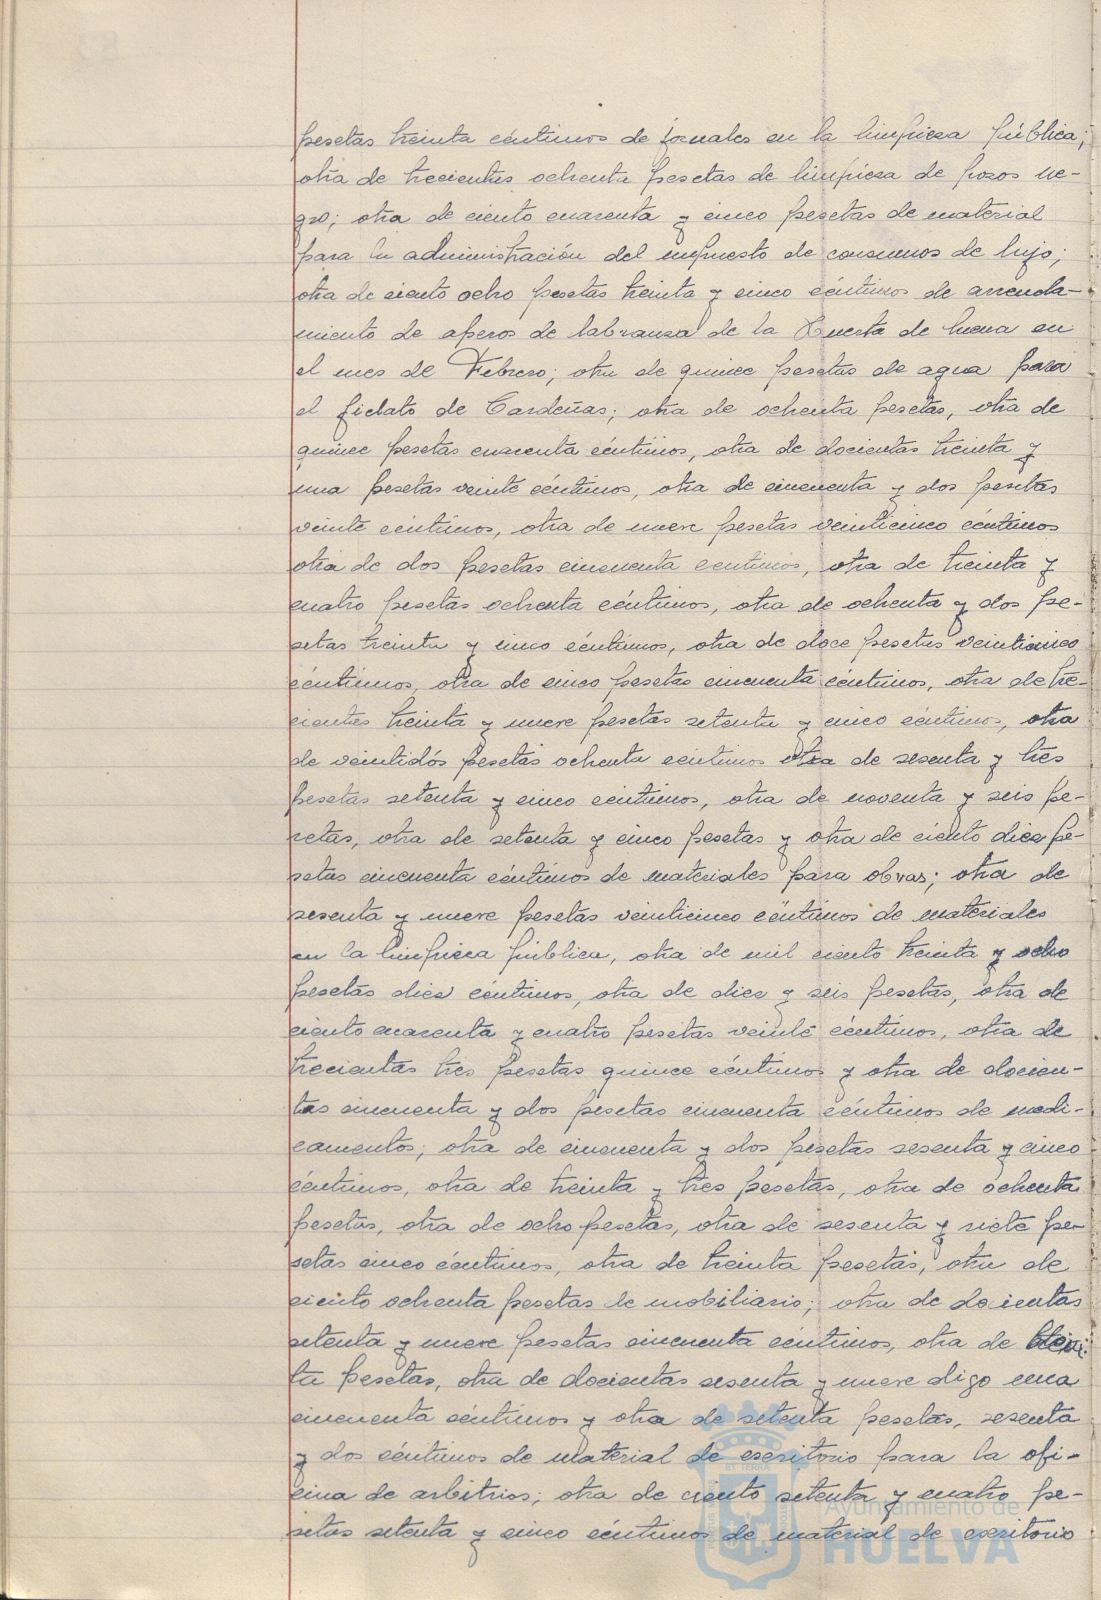 pesetas treinta céntimos de jornales en la limpiesa pública;
otra de trecientas ochenta pesetas de limpiesa de posos ne-
gro; otra de ciento cuarenta y cinco pesetas de material
para la administración del impuesto de consumos de lujo;
otra de ciento ocho pesetas treinta y cinco céntimos de arrenda-
miento de aperos de labransa de la Huerta de Mena en
el mes de Febrero; otra de quince pesetas de agua para
el fielato de Cardeñas; otra de ochenta pesetas, otra de
quince pesetas cuarenta céntimos, otra de docientas treinta y
una pesetas veinte céntimos, otra de cincuenta y dos pesetas
veinte céntimos, otra de nueve pesetas veinticinco céntimos
otra de dos pesetas cincuenta centimos, otra de treinta y
cuatro pesetas ochenta céntimos, otra de ochenta y dos pe-
setas treinta y cinco céntimos, otra de doce pesetas veinticinco
céntimos, otra de cinco pesetas cincuenta céntimos, otra de tre-
cientas treinta y nueve pesetas setenta y cinco céntimos, otra
de veintidós pesetas ochenta centimos otra de sesenta y tres
pesetas setenta y cinco céntimos, otra de noventa y seis pe-
setas, otra de setenta y cinco pesetas y otra de ciento diez pe-
setas cincuenta céntimos de materiales para obras; otra de
sesenta y nueve pesetas veinticinco céntimos de materiales
en la limpiesa pública, otra de mil ciento treinta y ocho
pesetas dies céntimos, otra de diez y seis pesetas, otra de
ciento cuarenta y cuatro pesetas veinte céntimos, otra de
trecientas tres pesetas quince céntimos y otra de docien-
tas cincuenta y dos pesetas cincuenta céntimos de medi-
camentos; otra de cincuenta y dos pesetas sesenta y cinco
céntimos, otra de treinta y tres pesetas, otra de ochenta
pesetas, otra de ocho pesetas, otra de sesenta y siete pe-
setas cinco céntimos, otra de treinta pesetas, otra de
ciento ochenta pesetas de mobiliario; otra de docientas
setenta y nueve pesetas cincuenta céntimos, otra de
ta pesetas, otra de docientas sesenta y nueve digo una
cincuenta céntimos y otra de setenta pesetas, sesenta
y dos céntimos de material de escritorio para la ofi-
cina de arbitrios; otra de ciento setenta y cuatro pe-
setas setenta y cinco céntimos de material de escritorio
Ayuntamiento de
HUELVA